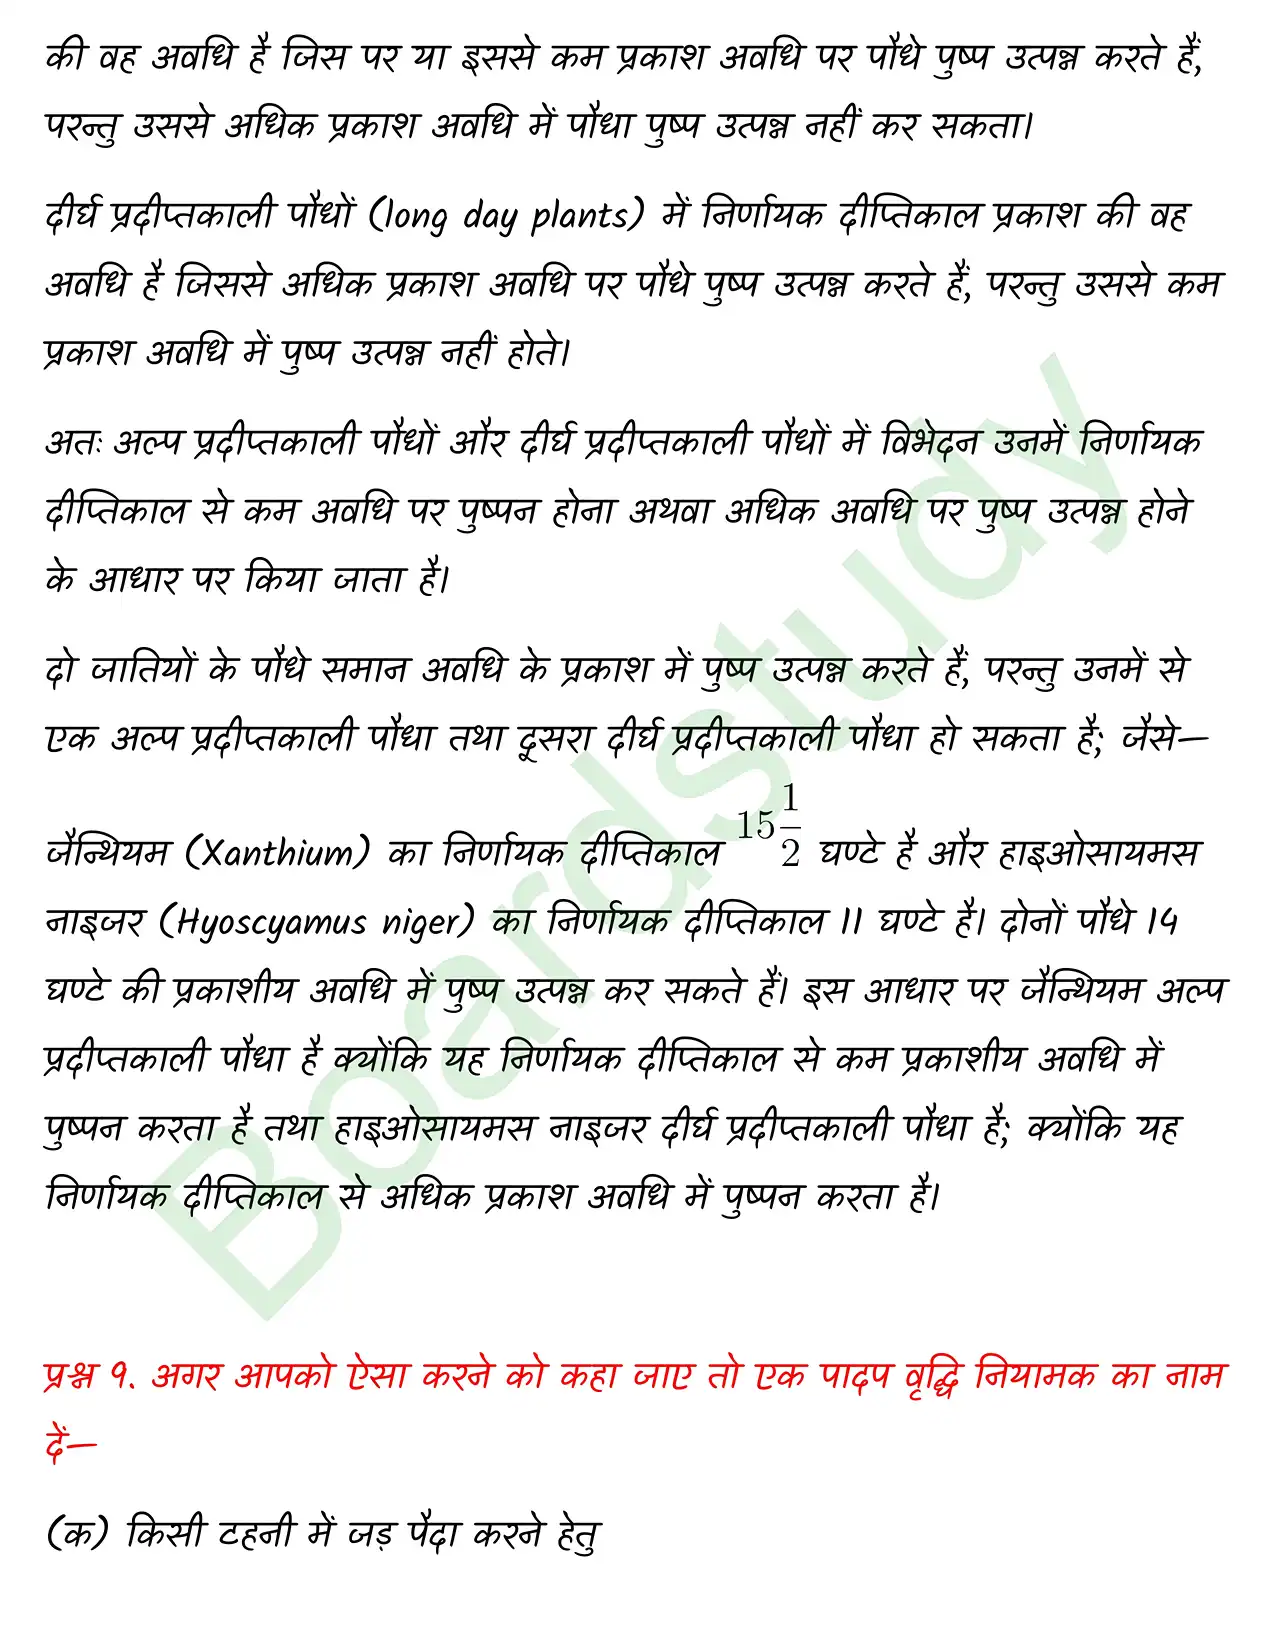 की वह अवधि है जिस पर या इससे कम प्रकाश अवधि पर पौधे पुष्प उत्पन्न करते हैं,
परन्तु उससे अधिक प्रकाश अवधि में पौधा पुष्प उत्पन्न नहीं कर सकता।
दीर्घ प्रदीप्तकाली पौधों (long day plants) में निर्णायक दीप्तिकाल प्रकाश की वह
अवधि है जिससे अधिक प्रकाश अवधि पर पौधे पुष्प उत्पन्न करते हैं, परन्तु उससे कम
प्रकाश अवधि में पुष्प उत्पन्न नहीं होते।
अतः अल्प प्रदीप्तकाली पौधों और दीर्घ प्रदीप्तकाली पौधों में विभेदन उनमें निर्णायक
दीप्तिकाल से कम अवधि पर पुष्पन होना अथवा अधिक अवधि पर पुष्प उत्पन्न होने
के आधार पर किया जाता है।
दो जातियों के पौधे समान अवधि के प्रकाश में पुष्प उत्पन्न करते हैं, परन्तु उनमें से
एक अल्प प्रदीप्तकाली पौधा तथा दूसरा दीर्घ प्रदीप्तकाली पौधा हो सकता है; जैसे—
जैन्थियम (Xanthium) का निर्णायक दीप्तिकाल 15 1/2 घण्टे है और हाइओसायमस
नाइजर (Hyoscyamus niger) का निर्णायक दीप्तिकाल 11 घण्टे है। दोनों पौधे 14
घण्टे की प्रकाशीय अवधि में पुष्प उत्पन्न कर सकते हैं। इस आधार पर जैन्थियम अल्प
प्रदीप्तकाली पौधा है क्योंकि यह निर्णायक दीप्तिकाल से कम प्रकाशीय अवधि में
पुष्पन करता है तथा हाइओसायमस नाइजर दीर्घ प्रदीप्तकाली पौधा है; क्योंकि यह
निर्णायक दीप्तिकाल से अधिक प्रकाश अवधि में पुष्पन करता है।
प्रश्न 9. अगर आपको ऐसा करने को कहा जाए तो एक पादप वृद्धि नियामक का नाम
दें—
(क) किसी टहनी में जड़ पैदा करने हेतु
Boardstudy